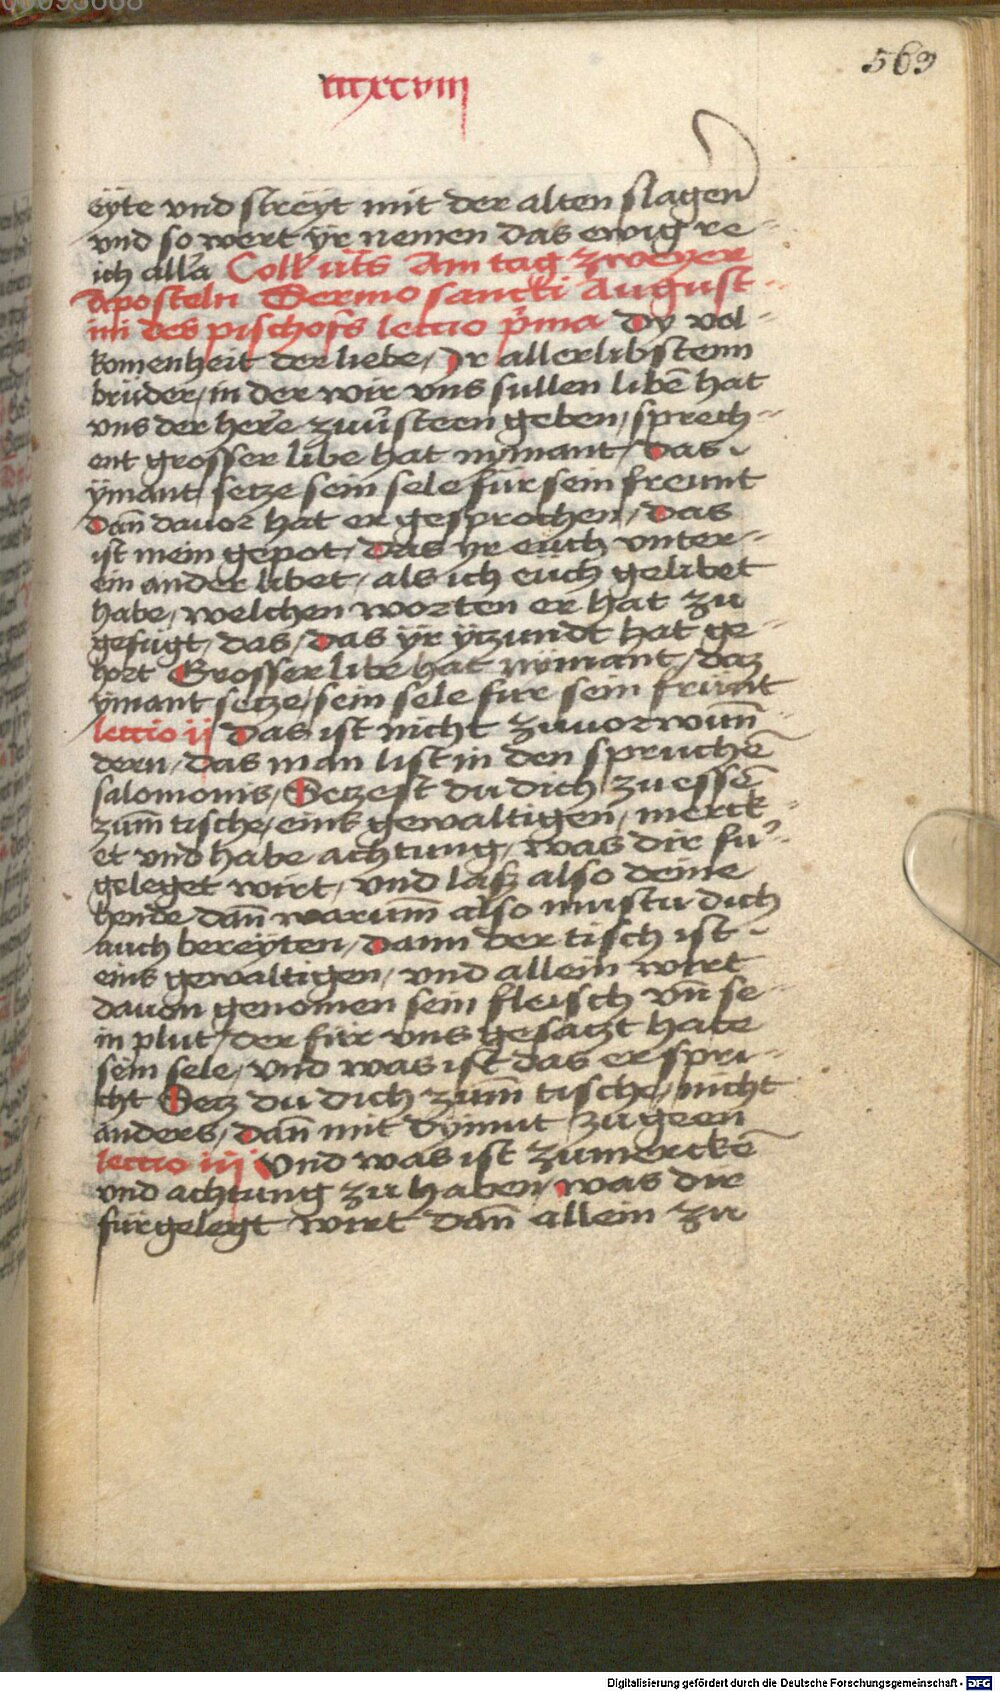 00095668
563
cccxcviii
eyte vnd streyt mit der alten slagen
vnd so wert yr nemen das ewig re-
ich all'a Coll' vts Am tag zweyer
Aposteln Sermo sancti August-
ini des pischofs lectio p'ma Dy vol-
komenheit der liebe / Ir allerlibstenn
brüder / in der wir vns sullen libē hat
vns der her'e zuu'steen geben / sprech-
ent grosser libe hat nymant / Das
ymant setze sein sele für sein freunt
Dañ dauor hat er gesprochen / Das
ist mein gepot / Das yr euch vnter-
ein ander libet / als ich euch gelibet
habe / welchen worten er hat zu
gefugt / das / Das yr ytzundt hat ge-
hort Grosser libe hat nymant / daz
ymant setze / sein sele fur sein frünt
lectio ij Das ist nicht zuuorwum̄-
dern / Das man list in den spruchē
salomonis / Setzest du dich zu essē
zum̄ tische / eins gewaltigen / merck-
et vnd habe achtung / was dir fu'-
geleget wirt / vnd lasz also deine
hende dañ warum̄ also mustu dich
auch bereyten / Dann der tisch ist
eins gewaltigen / vnd allein wirt
dauon genomen sein fleisch vñ se-
in plut / der für vns gesatzt hate
sein sele / vnd was ist das er spri-
cht Setz du dich zum̄ tische / nicht
anders / Dañ mit dymut zu geen
lectio iij Vnd was ist zumerckē
vnd achtung zu haben / was dir
fürgelegt wirt dañ allein zu
Digitalisierung gefördert durch die Deutsche Forschungsgemeinschaft - DFG